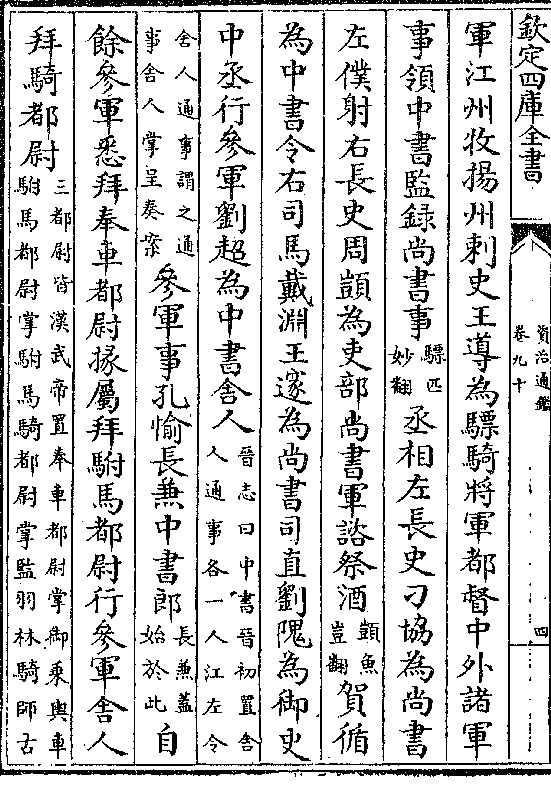 欽定四庫全書
資治通鑑
卷九十
四
軍江州牧揚州刺史王導為驃騎將軍都督中外諸軍
事領中書監録尚書事驃匹妙翻丞相左長史刁協為尚書
左僕射右長史周顗為吏部尚書軍諮祭酒顗魚豈翻賀循
為中書令右司馬戴淵王邃為尚書司直劉隗為御史
中丞行參軍劉超為中書舍人晉志曰中書晉初置舍人通事各一人江左令
舍人通事謂之通事舍人掌呈奏案參軍事孔愉長兼中書郎長兼蓋始於此自
餘參軍悉拜奉車都尉掾屬拜駙馬都尉行參軍舍人
拜騎都尉三都尉皆漢武帝置奉車都尉掌御乘輿車駙馬都尉掌駙馬騎都尉掌監羽林騎師古